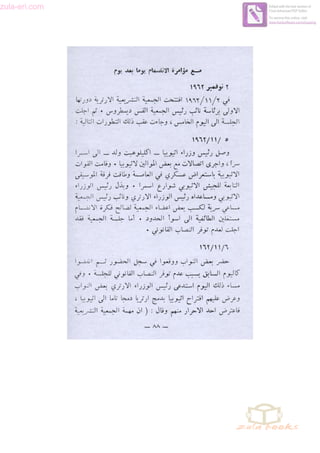 zula-eri.com
مـع مؤامرة الانتسمام يوما بعد يوم
٢ نوفمبر ١٩٦٢
في ١٩٦٢/١١/٢ افتتحت الجمعية التشريعية الارترية دورتها
الاولى برئاسة نائب رئيس الجمعية القس ديمطروس ٠ ثم اجلت
الجلسـة الى اليوم الخامس ، وجاءت عقب ذلك التطورات التالية :
٥/ ١٩٦٢/١١
وصل رئيس وزراء اثيوبيا ــ اكليلوهبت ولد ــ الى اسمرا
سرا ، واجرى اتصالات مع بعض الموالين لاثيوبيا ٠ وقامت القوات
الاثيوبية باستعراض عسكري في العاصمة وطافت فرقة الموسيقى
التابعة للجيش الاثيوبي شوارع اسمرا ٠ وبذل رئيس الوزراء
الاثيوبي ومساعداه رئيس الوزراء الارتري ونائب رئيس الجمعية
مساعي سرية لكسب بعض اعضاء الجمعية لصالح فكرة الانضمام
مستغلين الطائفية الى اسوأ الحدود ٠ أما جلسة الجمعية فقد
اجلت لعدم توفر النصاب القانوني ٠
١٦٢/١١/٦
حضر بعض النواب ووقعوا في سجل الحضور ثـم انفضـوا
كاليوم السابق بسبب عدم توفر النصاب القانوني للجلسة ٠ وفي
مساء ذلك اليوم استدعى رئيس الوزراء الارتري بعض النواب
وعرض عليهم اقتراح اثيوبيا بدمج ارتريا دمجا تاما الى اثيوبيا ،
فاعترض احد الاحرار منهم وقال : ( ان مهمة الجمعية التشريعية
— ٨٨ —
zula books